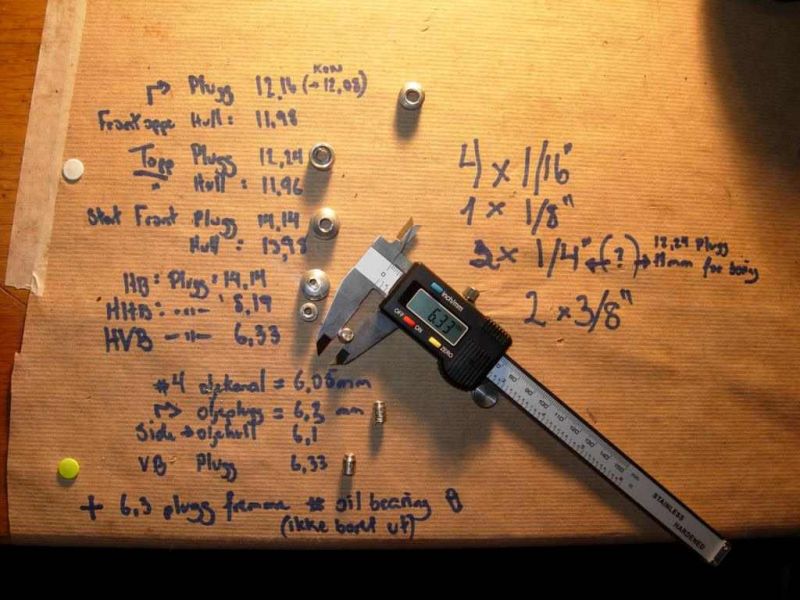 Plugg 12,16 (→12,08)
KON
Hull: 11,98
Topp Plugg 12,24
" Hull: 11,96
Stat Front Plugg 14,14
Hull: 13,98
HB: Plugg: 14,14
HHB: -"- 8,19
HVB -"- 6,33
#4 oljekanal = 6,05mm
↳ oljeplugg = 6,3 mm
Side → oljehull 6,1
VB Plugg 6,33
+ 6,3 plugg fremme # oil bearing
(ikke boret ut)
4 x 1/16"
1 x 1/8"
1/4" ← (?) → 12,24 Plugg
11mm for boring
2 x 3/8"
inch/mm
6.33
OFF
ON
ZERO
80 90 100 110 120 130 140 150
mm
STAINLESS
HARDENED